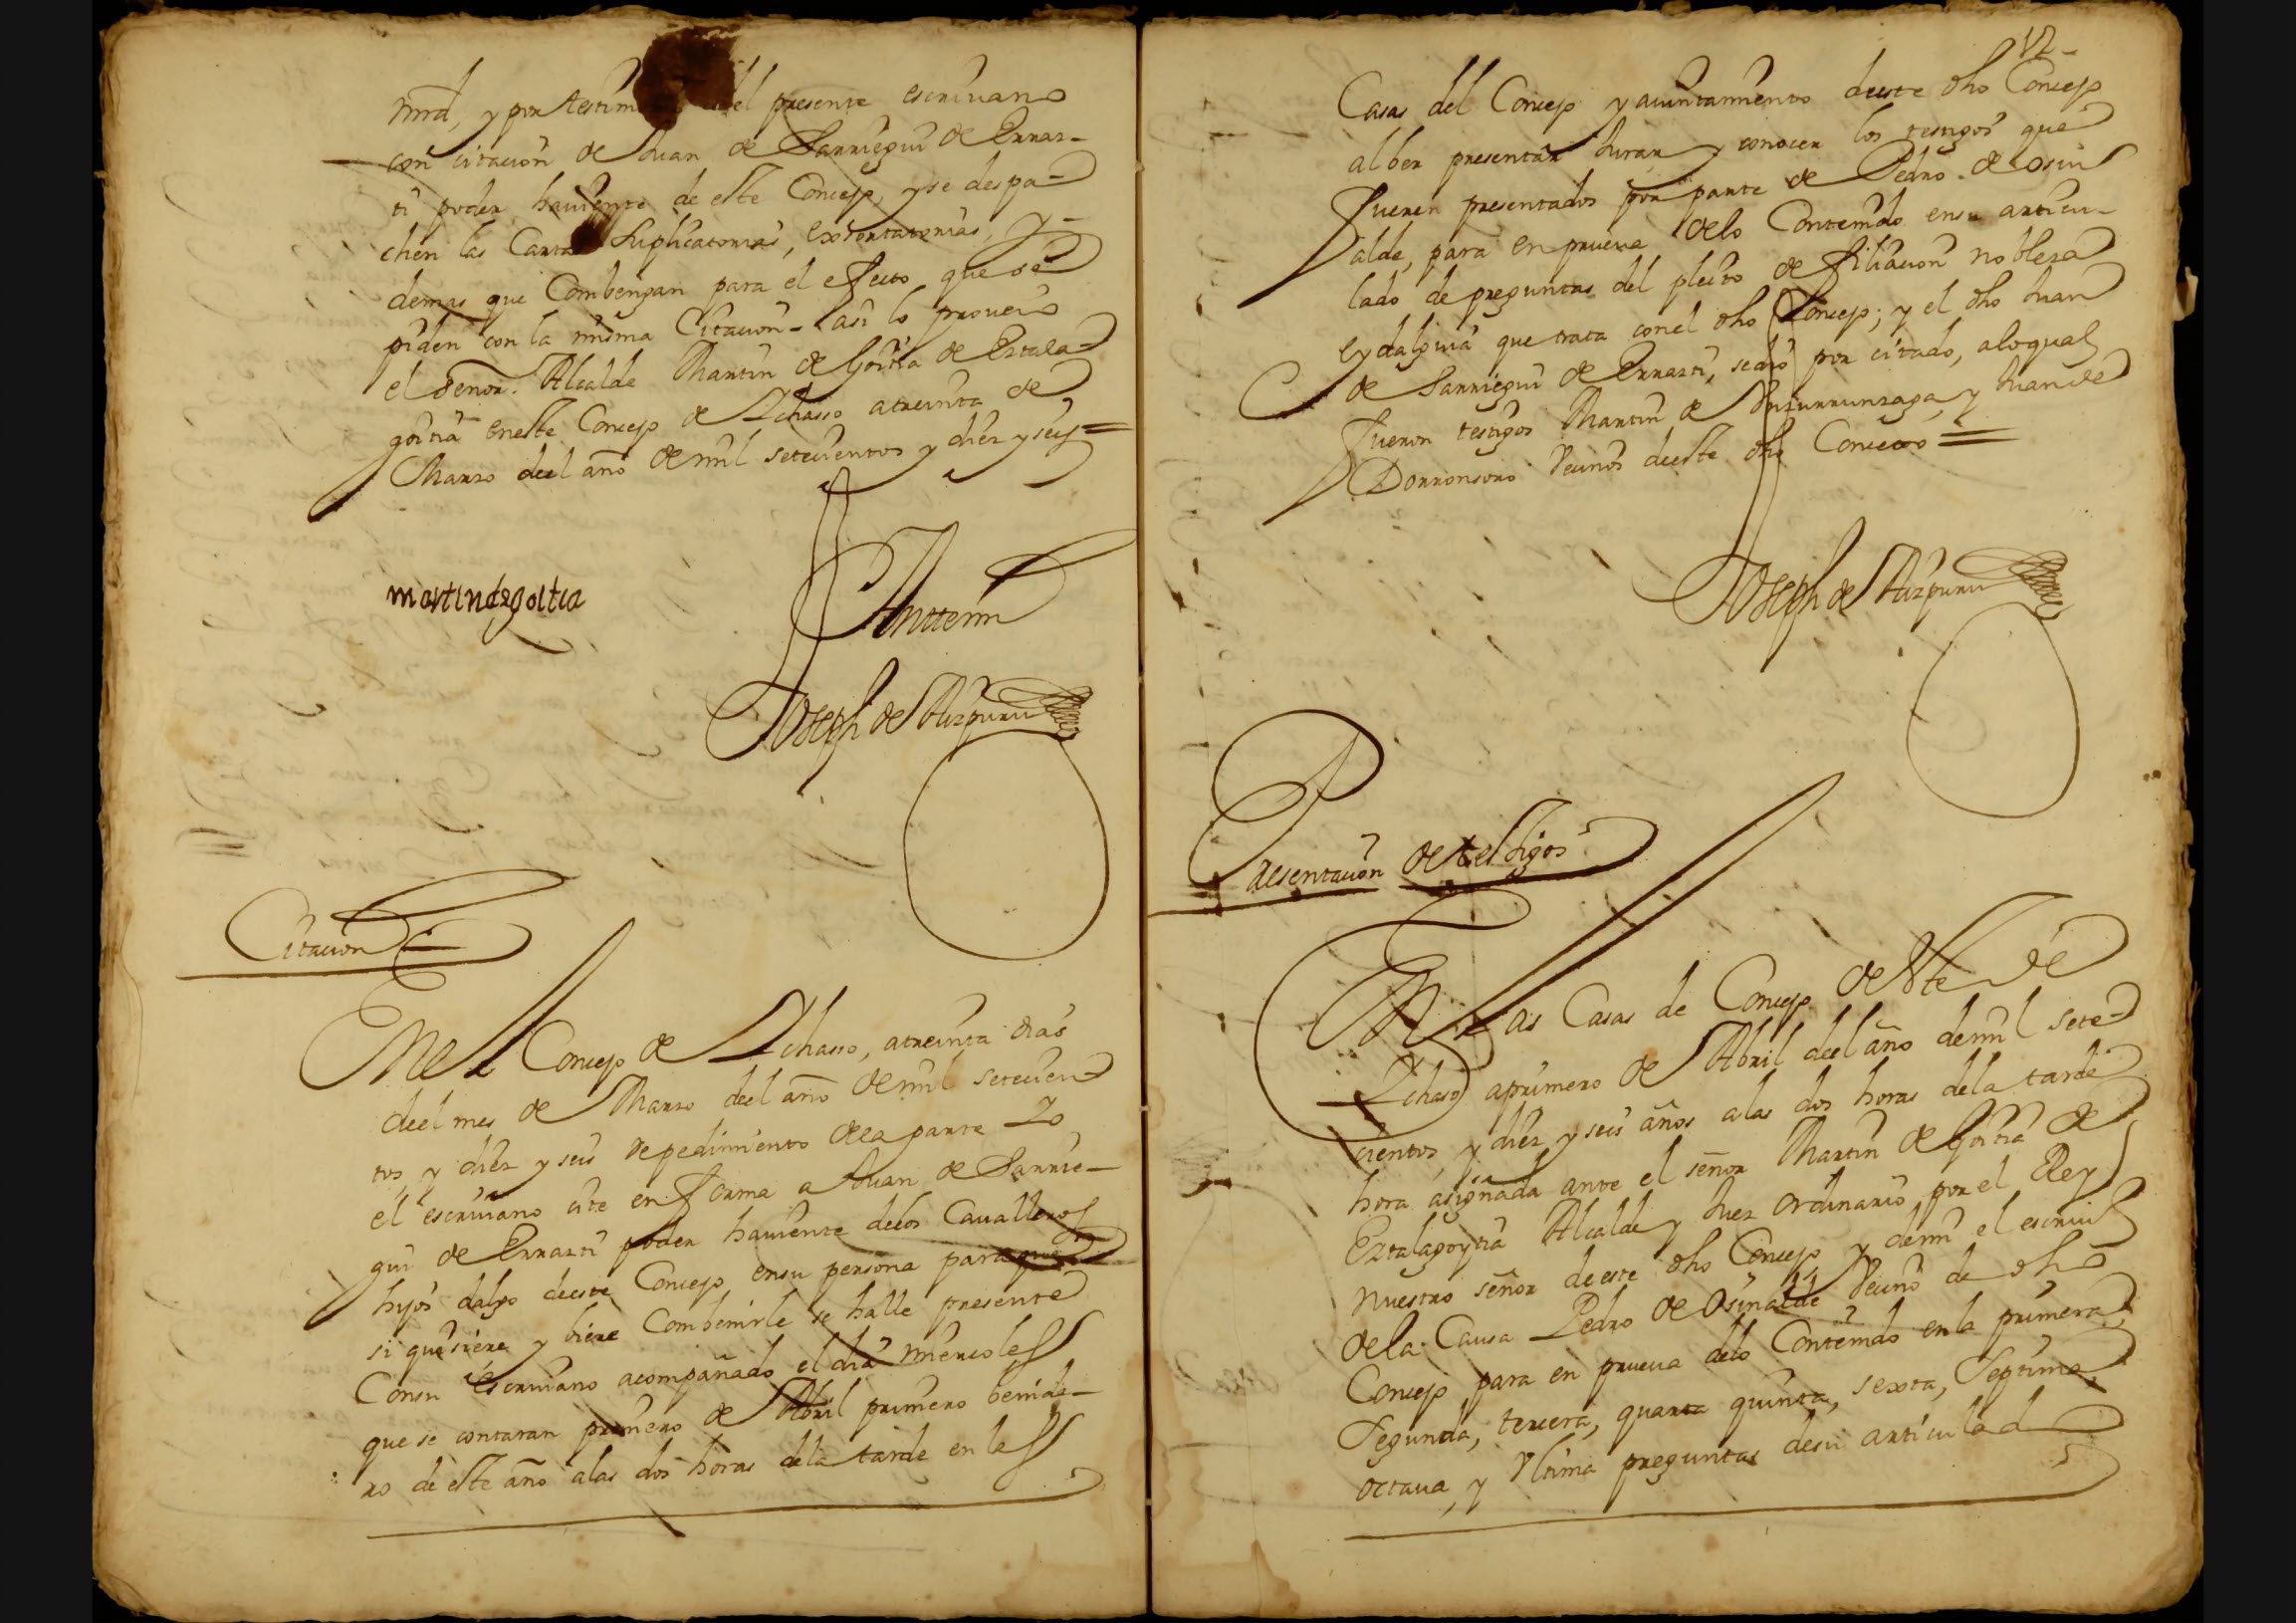 mrd, y por testim del presente escriuano
con citacion de Juan de Sarriegui de Errar-
ti poder hauiente de este Concejo, y se despa-
chen las Cartas Suplicatorias, exortatorias, y
demas que Combengan para el efecto que se
piden con la misma Citacion - asi lo proueio
el señor Alcalde Martin de Goitia de Eztala-
goitia eneste Concejo de Ichasso atreinta de
Marzo deel año de mil setecientos y diez y seis =
martin de goitia
Antemi
Joseph de Aizpuru
Citacion
En el Concejo de Ichasso, atreinta dias
deel mes de Marzo deel año de mil setecien-
tos y diez y seis de pedimiento dela parte Yo
el escriuano cite en forma a Juan de Sarrie-
gui de Errarti poder hauiente delos Caualleros
hijos dalgo deeste Concejo ensu persona paraque
si quisiere y biere Combenirle se halle presente
Consu escriuano acompañado el dia miercoles
que se contaran primero de Abril primero benide-
ro de este año alas dos horas dela tarde en las
12
Casas del Concejo y aiuntamiento deeste dho Concejo
alber presentar Jurar y conocer los testigos que
fueren presentados por parte de Pedro de Osin
alde, para en prueua delo Contenido ensu articu-
lado de preguntas del pleito de filiacion nobleza
eydalguia que trata conel dho Concejo; y el dho Juan
de Sarriegui de Errarti, sedio por citado, aloqual
fueron testigos Martin de y Juan de
Dorronsoro Vecinos deeste dho Concejo =
Joseph de Aizpuru
Presentacion de testigos
En Las Casas de Concejo de Este de
Ichaso aprimero de Abril deel año demil sete-
cientos, y diez y seis años alas dos horas dela tarde
hora asignada ante el señor Martin de Goitia de
Eztalagoytia Alcalde y Juez ordinario por el Rey
nuestro señor deeste dho Concejo y demi el escriu
dela Causa Pedro de Osinalde Vecino de dho
Concejo para en prueua delo Contenido enla primera
Segunda, tercera, quarta quinta, sexta, Septima,
octaua, y Vltima preguntas desu articulad